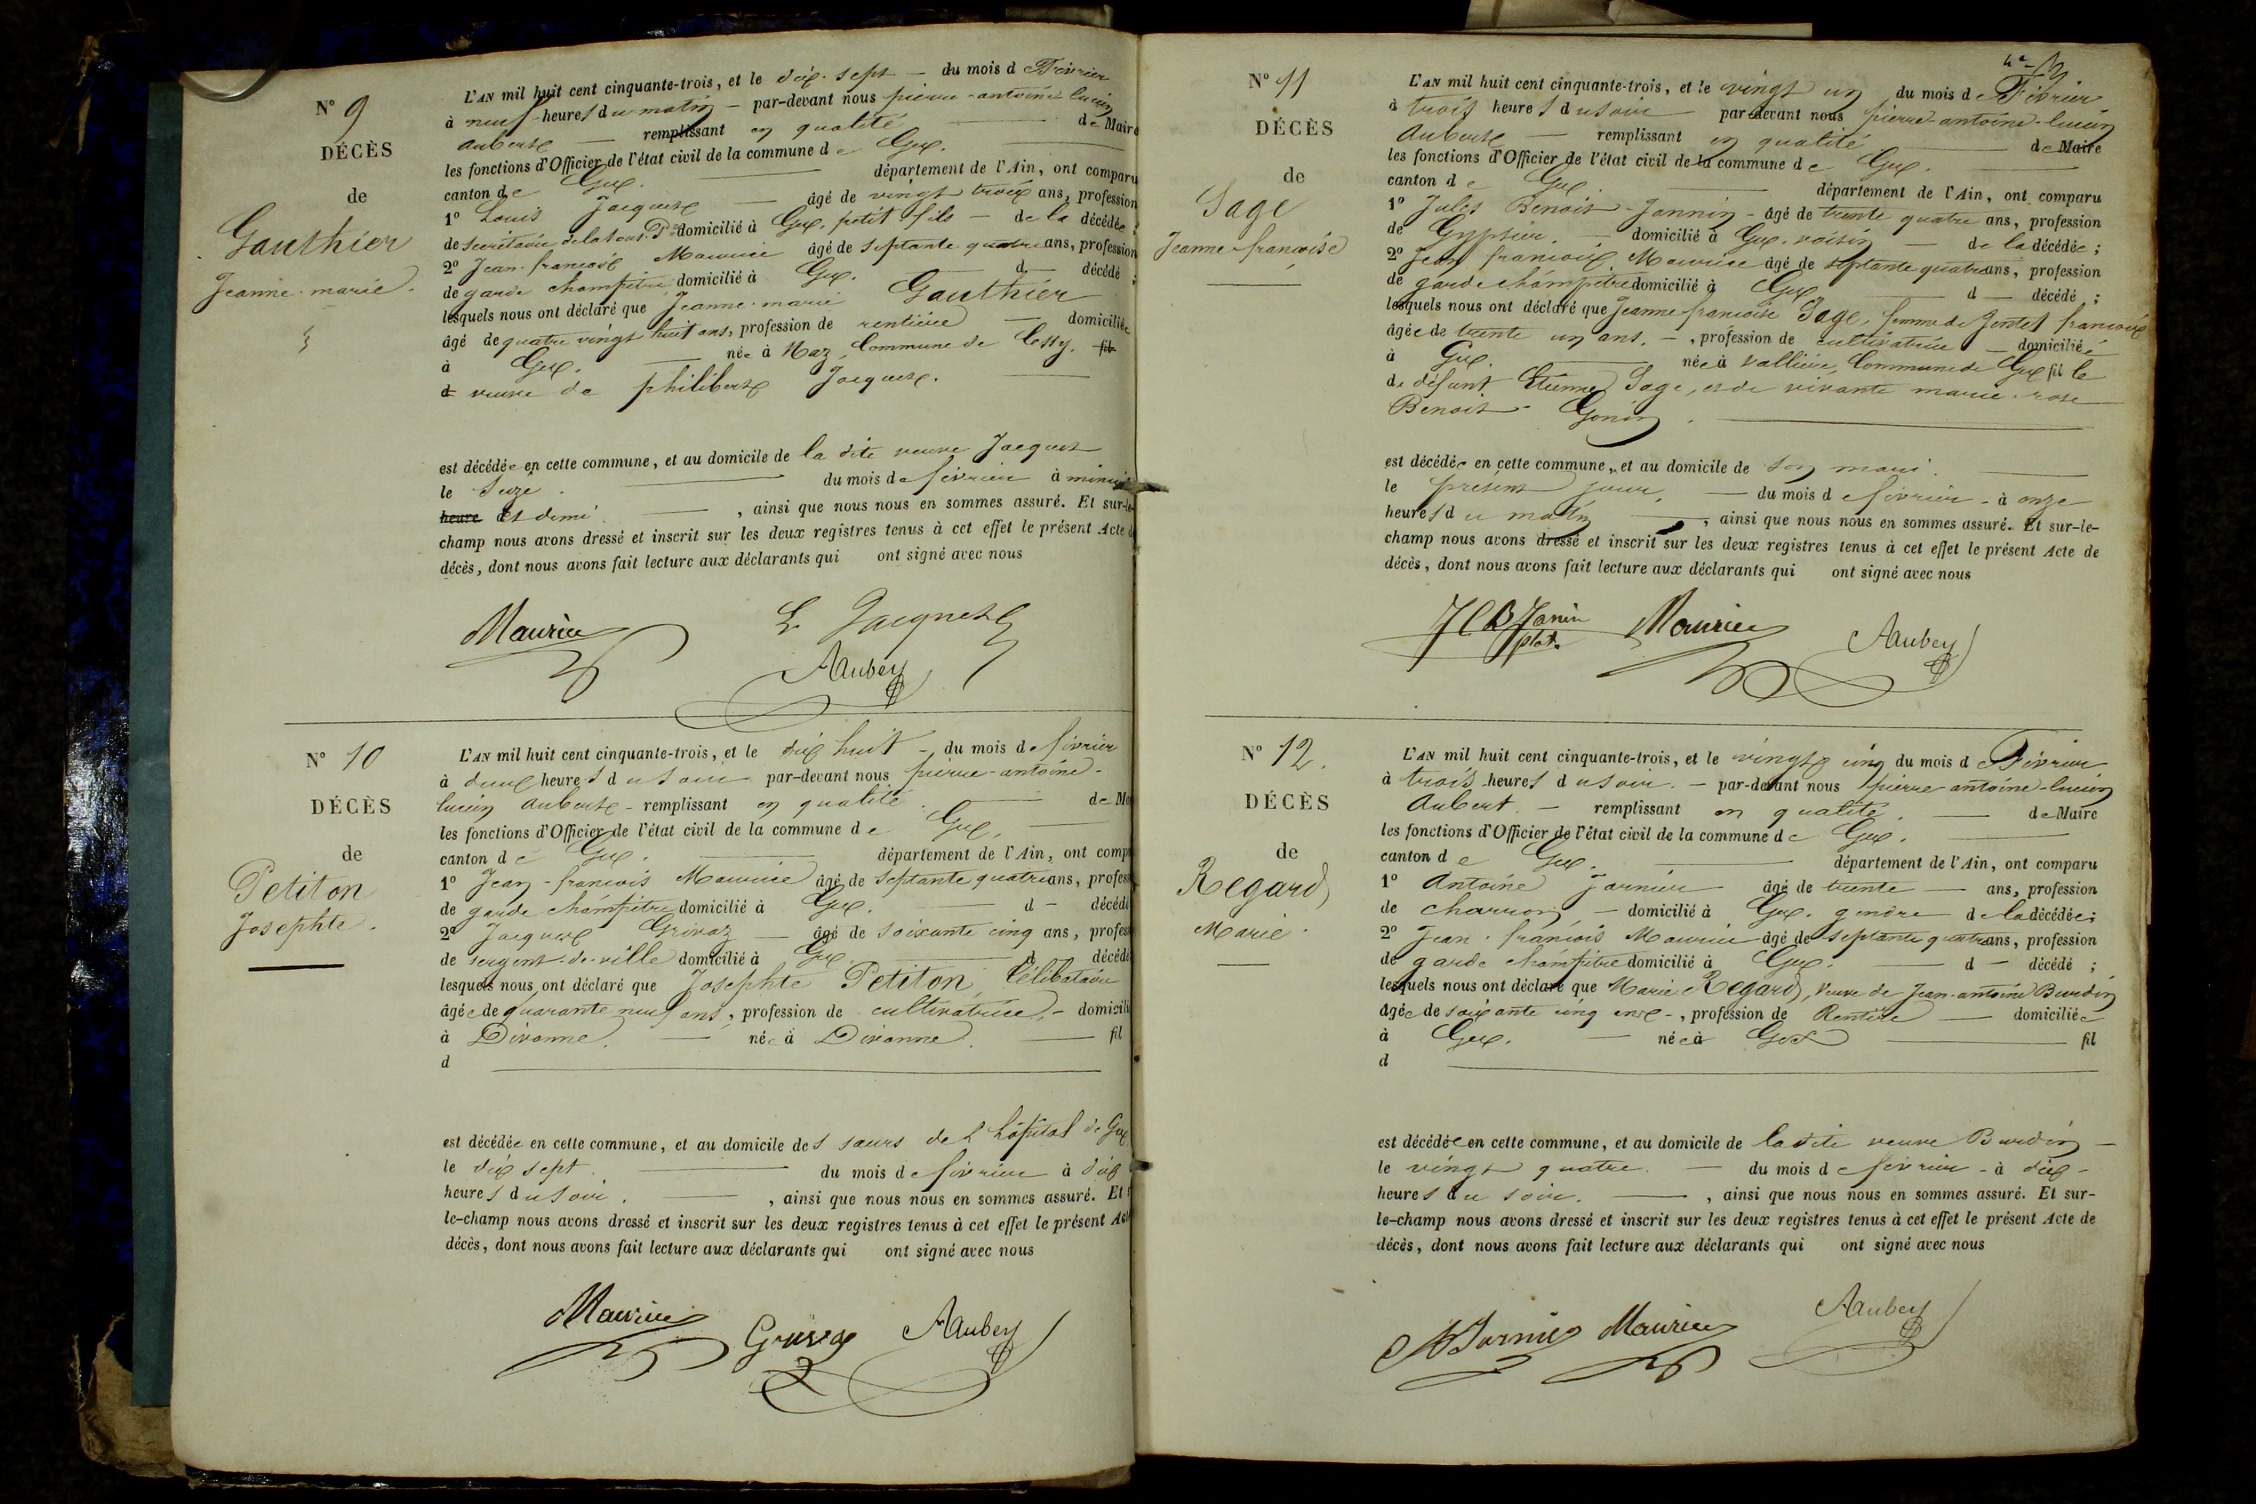 N° 9
DÉCÈS
de
Gauthier
Jeanne-marie.
L'AN mil huit cent cinquante-trois, et le dix-sept — du mois d e Février
à neuf heures du matin — par-devant nous pierre-antoine-lucien
Aubert — remplissant en qualité — de Maire
les fonctions d'Officier de l'état civil de la commune d e Gex.
canton de Gex. — département de l'Ain, ont comparu
1° Louis Jacquet — âgé de vingt trois ans, profession
de secrétaire de la sous-P. domicilié à Gex, petit fils — de la décédée;
2° Jean-françois Maurice âgé de septante quatre ans, profession
de garde champêtre domicilié à Gex. — d — décédé ;
lesquels nous ont déclaré que Jeanne-marie Gauthier
âgé de quatre vingt huit ans, profession de rentière — domiciliée
à Gex. — née à Naz, Commune de Cessy. fil
d veuve de philibert Jacquet. —
est décédée en cette commune, et au domicile de la dite veuve Jacquet
le seize. — du mois de février à minuit
heure et demi. — , ainsi que nous nous en sommes assuré. Et sur-le-
champ nous avons dressé et inscrit sur les deux registres tenus à cet effet le présent Acte de
décès, dont nous avons fait lecture aux déclarants qui ont signé avec nous
Maurice L. Jacquet
Aubert
N° 10
DÉCÈS
de
Petiton
Josephte.
L'AN mil huit cent cinquante-trois, et le dix huit — du mois de février
à deux heures du soir par-devant nous pierre-antoine-
lucien Aubert — remplissant en qualité. — de Ma
les fonctions d'Officier de l'état civil de la commune d e Gex. —
canton d e Gex. — département de l'Ain, ont comp
1° Jean-françois Maurice âgé de septante quatre ans, profess
de garde champêtre domicilié à Gex. — d — décédé
2° Jacques Grivaz — âgé de soixante cinq ans, profess
de sergent-de-ville domicilié à Gex. — d décédé
lesquels nous ont déclaré que Josephte Petiton, Célibataire
âgée de quarante neuf ans, profession de cultivatrice, — domicili
à Divonne. — née à Divonne. — fil
d —
est décédée en cette commune, et au domicile des sœurs de l'hôpital de Gex
le dix sept. — du mois de février à dix
heures du soir. — , ainsi que nous nous en sommes assuré. Et s
le-champ nous avons dressé et inscrit sur les deux registres tenus à cet effet le présent Act
décès, dont nous avons fait lecture aux déclarants qui ont signé avec nous
Maurice Grivaz Aubert
N° 11
DÉCÈS
de
Sage
Jeanne-françoise
L'AN mil huit cent cinquante-trois, et le vingt un du mois de Février
à trois heures du soir par-devant nous pierre-antoine-lucien
Aubert — remplissant en qualité — de Maire
les fonctions d'Officier de l'état civil de la commune de Gex. —
canton d e Gex. — département de l'Ain, ont comparu
1° Jules Benoit-Jannin — âgé de trente quatre ans, profession
de Gypseur. — domicilié à Gex. voisin — de la décédée;
2° Jean françois Maurice âgé de septante quatre ans, profession
de garde champêtre domicilié à Gex — d — décédé ;
lesquels nous ont déclaré que Jeanne françoise Sage, femme de Gentet françois
âgée de trente un ans. — , profession de cultivatrice — domiciliée
à Gex. — née à Vallière, Commune de Gex fil le
de défunt Etienne Sage, et de vivante marie-rose
Benoit-Gonin. —
est décédée en cette commune, et au domicile de son mari. —
le présent jour. — du mois de février - à onze
heures du matin — , ainsi que nous nous en sommes assuré. Et sur-le-
champ nous avons dressé et inscrit sur les deux registres tenus à cet effet le présent Acte de
décès, dont nous avons fait lecture aux déclarants qui ont signé avec nous
Janin plat. Maurice Aubert
N° 12.
DÉCÈS
de
Regard
Marie.
L'AN mil huit cent cinquante-trois, et le vingt cinq du mois de Février
à trois heures du soir. — par-devant nous pierre antoine-lucien
Aubert. — remplissant en qualité. — de Maire
les fonctions d'Officier de l'état civil de la commune de Gex. —
canton d e Gex. — département de l'Ain, ont comparu
1° Antoine Jarnier âgé de trente — ans, profession
de charron, — domicilié à Gex. gendre de la décédée;
2° Jean-françois Maurice âgé de septante quatre ans, profession
de garde champêtre domicilié à Gex. — d — décédé ;
lesquels nous ont déclaré que Marie Regard, Veuve de Jean-antoine Burdin
âgée de soixante cinq ans — , profession de Rentière — domiciliée
à Gex. — née à Gex — fil
d —
est décédée en cette commune, et au domicile de la dite veuve Burdin —
le vingt quatre. — du mois de février - à dix -
heures du soir. — , ainsi que nous nous en sommes assuré. Et sur-
le-champ nous avons dressé et inscrit sur les deux registres tenus à cet effet le présent Acte de
décès, dont nous avons fait lecture aux déclarants qui ont signé avec nous
Jarnier Maurice Aubert